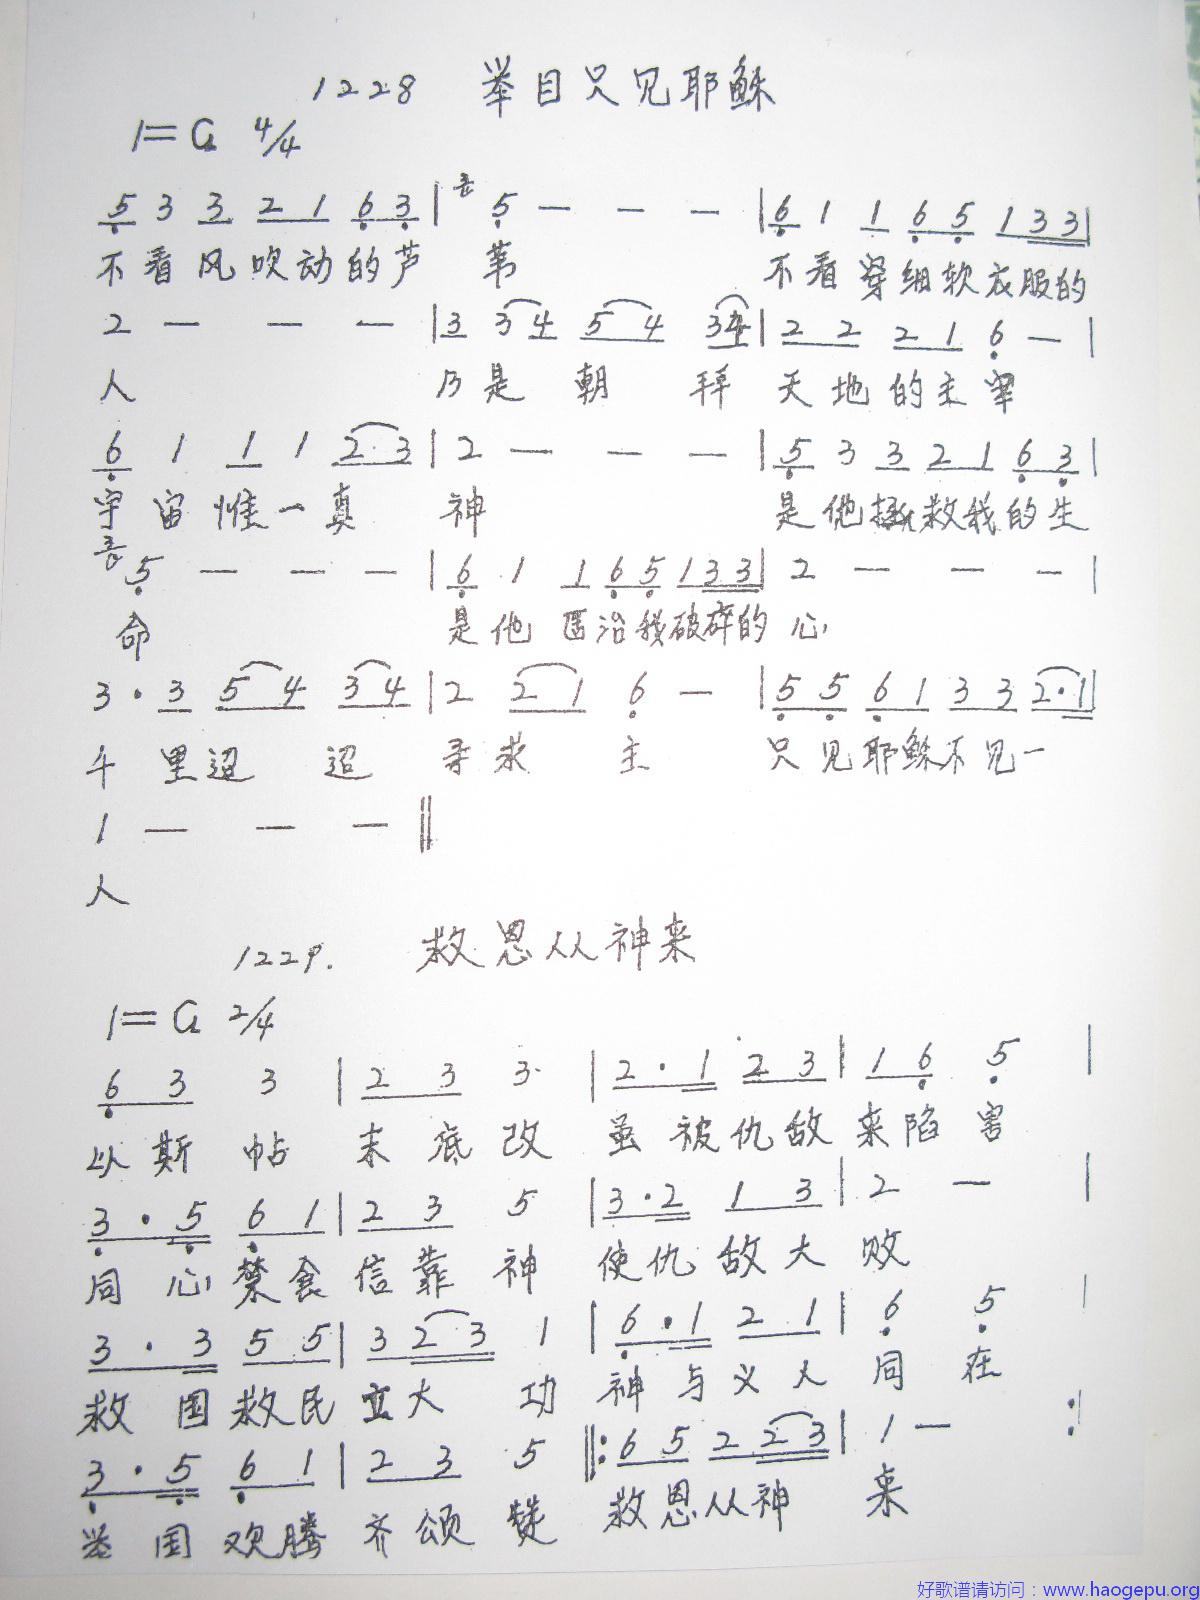 1228 举目只见耶稣
1=G 4/4
5 3 3 2 1 6 3 | 5 — — — | 6 1 1 6 5 1 3 3 |
不看风吹动的芦 苇 不看穿细软衣服的
2 — — — | 3 3 4 5 4 3 4 | 2 2 2 1 6 — |
人 乃是朝拜 天地的主宰
6 1 1 1 2·3 | 2 — — — | 5 3 3 2 1 6 3 |
宇宙惟一真 神 是他拯救我的生
5 — — — | 6 1 1 6 5 1 3 3 | 2 — — — |
命 是他医治我破碎的 心
3·3 5 4 3 4 | 2 2 1 6 — | 5 5 6 1 3 3 2·1 |
千里迢迢 寻求主 只见耶稣不见一
1 — — — ‖
人
1229. 救恩从神来
1=G 2/4
6 3 3 | 2 3 3 | 2·1 2 3 | 1 6 5 |
以斯帖 末底改 虽被仇敌 来陷害
3·5 6 1 | 2 3 5 | 3·2 1 3 | 2 — |
同心禁食 信靠神 使仇敌大 败
3·3 5 5 | 3 2 3 1 | 6·1 2 1 | 6 5 |
救国救民 立大功 神与义人 同在
3·5 6 1 | 2 3 5 ‖: 6 5 2 2 3 | 1 — :|
举国欢腾 齐颂赞 救恩从神 来
好歌谱请访问：www.haogepu.org